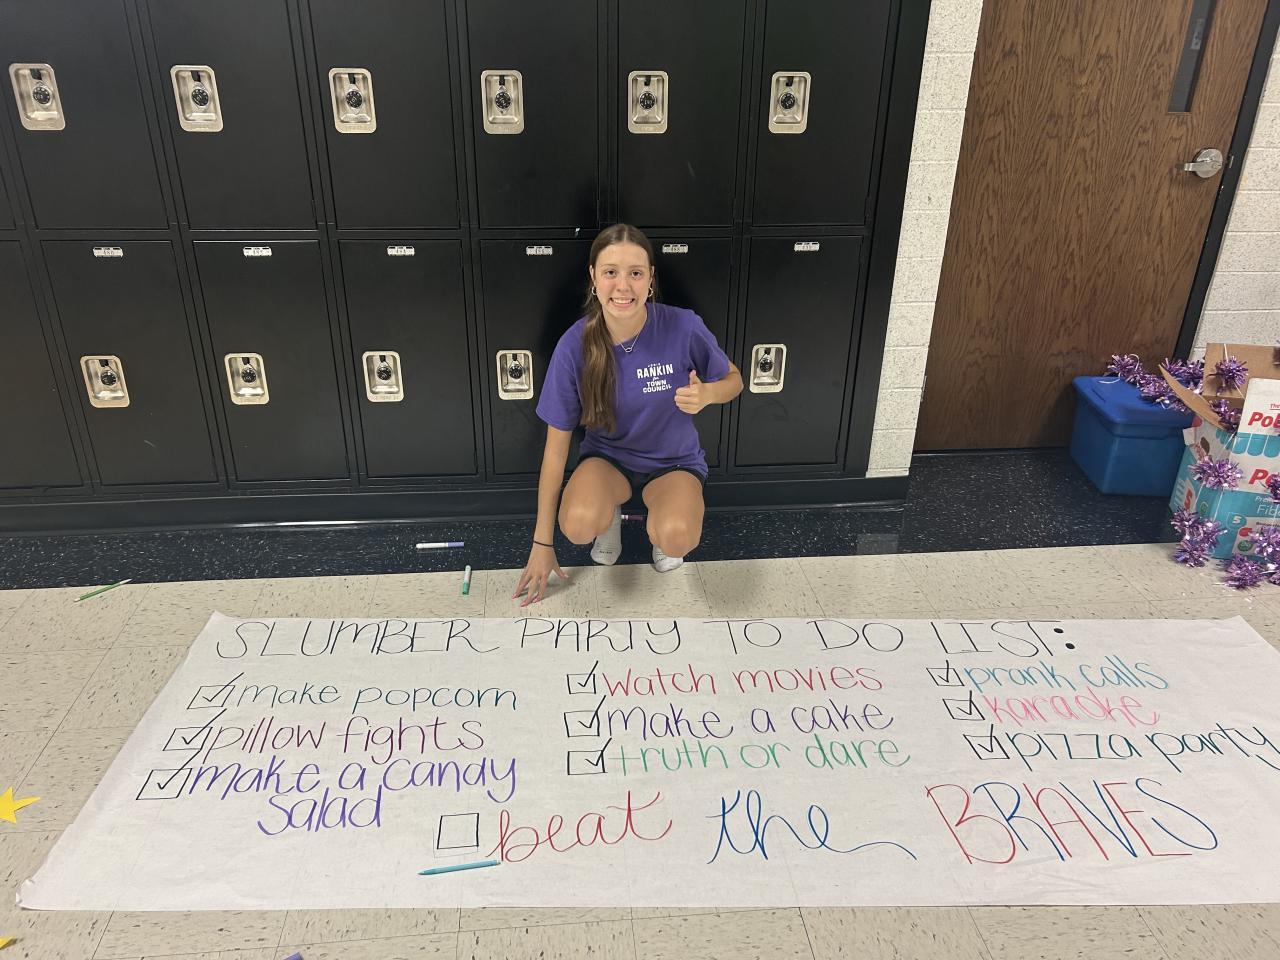 RANKIN
for
TOWN
COUNCIL
SLUMBER PARTY TO DO LIST:
make popcorn
pillow fights
make a candy
salad
watch movies
make a cake
truth or dare
prank calls
karaoke
pizza party
beat the BRAVES